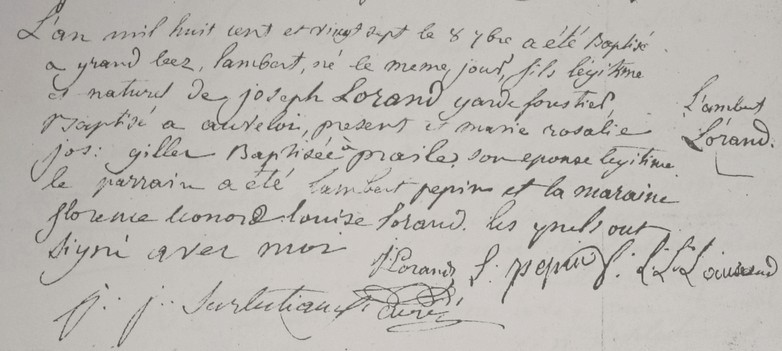 L'an mil huit cent et vingt sept le 8 7bre a été Baptisé
a grand leez, lambert, né le meme jour, fils légitime
et naturel de joseph Lorand garde forestier,
Baptisé a auveloi, present et marie rosalie
jos: gilles Baptisée a praile, son epouse legitime
le parrain a été lambert pepin et la maraine
florence leonord louise Lorand. les quels ont
signé avec moi
Lambert
Lorand.
J Lorand L. pepin f: L: L: Lorand
j. j. curé